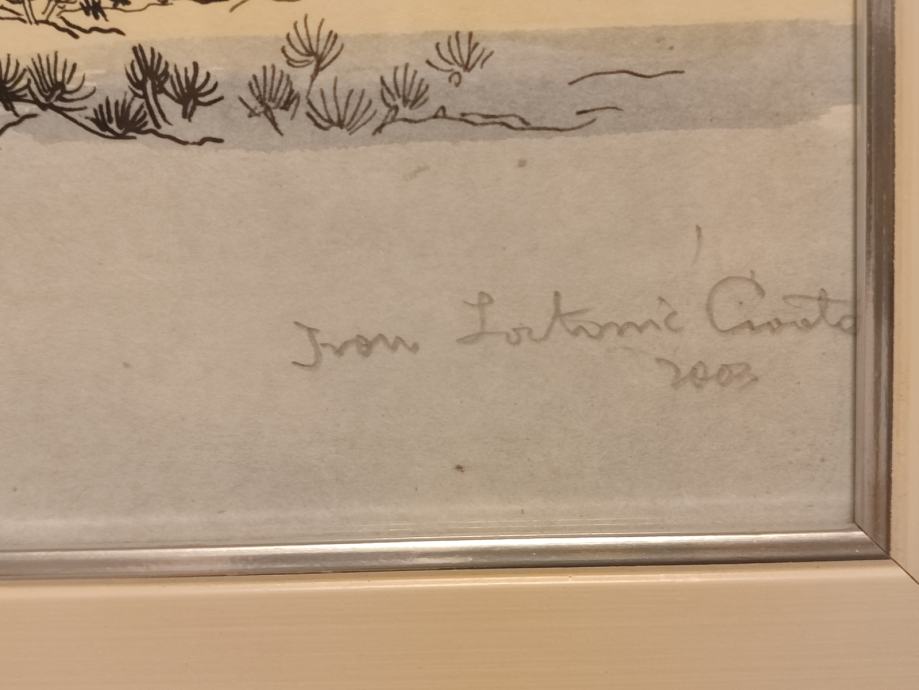 Ivan Lacković Croata
2003